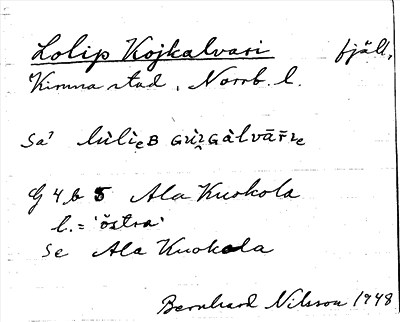 Lolip Kojkalvari fjäll,
Kiruna stad, Norrb. l.
Sa'
G 4 b 5 Ala Kuokola
l. = 'östra'
Se Ala Kuokola
Bernhard Nilsson 1948